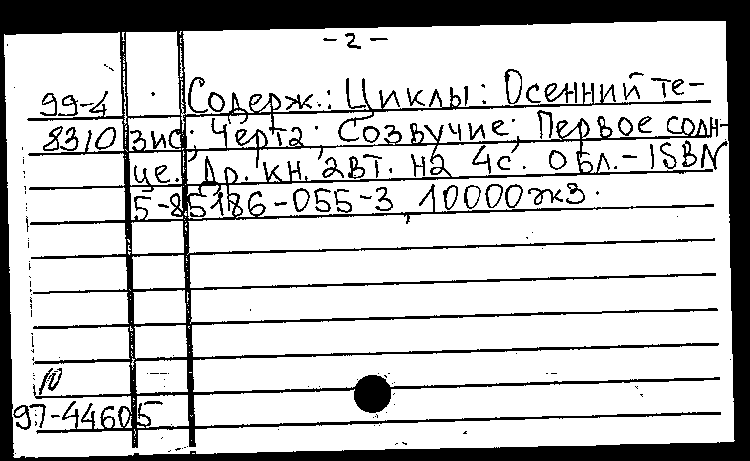 - 2 -
99-4 Содерж.: Циклы: Осенний те-
8310 зис; Черта; Созвучие; Первое солн-
це. Др. кн. авт. на 4с. обл. - ISBN
5-85186-055-3, 10000 экз.
10
97-44605